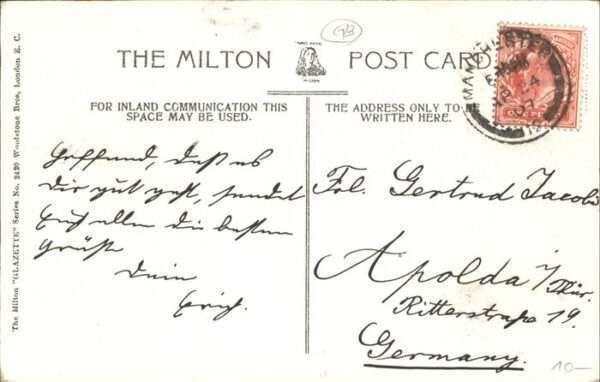 THE MILTON POST CARD
FOR INLAND COMMUNICATION THIS
SPACE MAY BE USED.
THE ADDRESS ONLY TO BE
WRITTEN HERE.
Hoffend, daß es
Dir gut geht, sendet
Euch allen die besten
Grüße
Dein
Erich.
Frl. Gertrud Jacobi
Apolda i/Thür.
Ritterstraße 19.
Germany.
MANCHESTER
The Milton "GLAZETTE" Series No. 2430 Woodstone Bros, London E. C.
10-